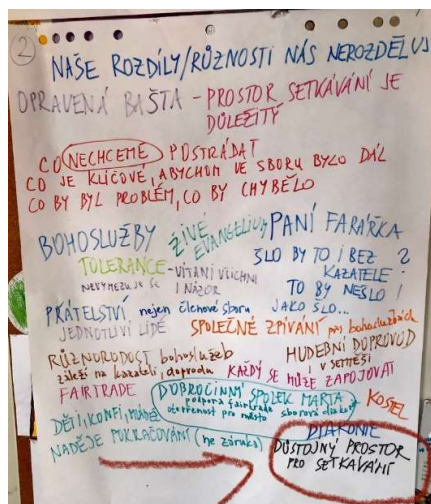 2
NAŠE ROZDÍLY/RŮZNOSTI NÁS NEROZDĚLUJ
OPRAVENÁ BAŠTA - PROSTOR SETKÁVÁNÍ JE
DŮLEŽITÝ
CO NECHCEME POSTRÁDAT
CO JE KLÍČOVÉ, ABYCHOM VE SBORU BYLO DÁL
CO BY BYL PROBLÉM, CO BY CHYBĚLO
BOHOSLUŽBY ŽIVÉ EVANGELIUM PANÍ FARÁŘKA
TOLERANCE - VÍTÁNI VŠICHNI
I NÁZOR
ŠLO BY TO I BEZ ?
KAZATELE
TO BY NEŠLO !
JAKO ŠLO...
PŘÁTELSTVÍ nejen členové sboru
JEDNOTLIVÍ LIDÉ SPOLEČNÉ ZPÍVÁNÍ při bohoslužbách
RŮZNORODOST bohoslužeb
záleží na kazateli, doprovodu
HUDEBNÍ DOPROVOD
KAŽDÝ SE MŮŽE ZAPOJOVAT
FAIRTRADE
DOBROČINNÝ SPOLEK MARTA
podpora fairtrade
otevřenost pro město sborová diakonie
KOSTEL
DĚTI, KONFI, MLÁDEŽ
NADĚJE POKRAČOVÁNÍ (ne záruka)
DIAKONIE
DŮSTOJNÝ PROSTOR
PRO SETKÁVÁNÍ